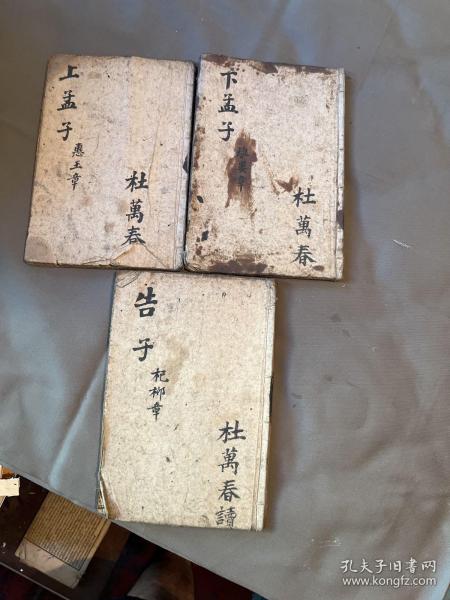 上孟子
惠王章
杜萬春
下孟子
杜萬春
告子
杞柳章
杜萬春讀
孔夫子旧书网
www.kongfz.com